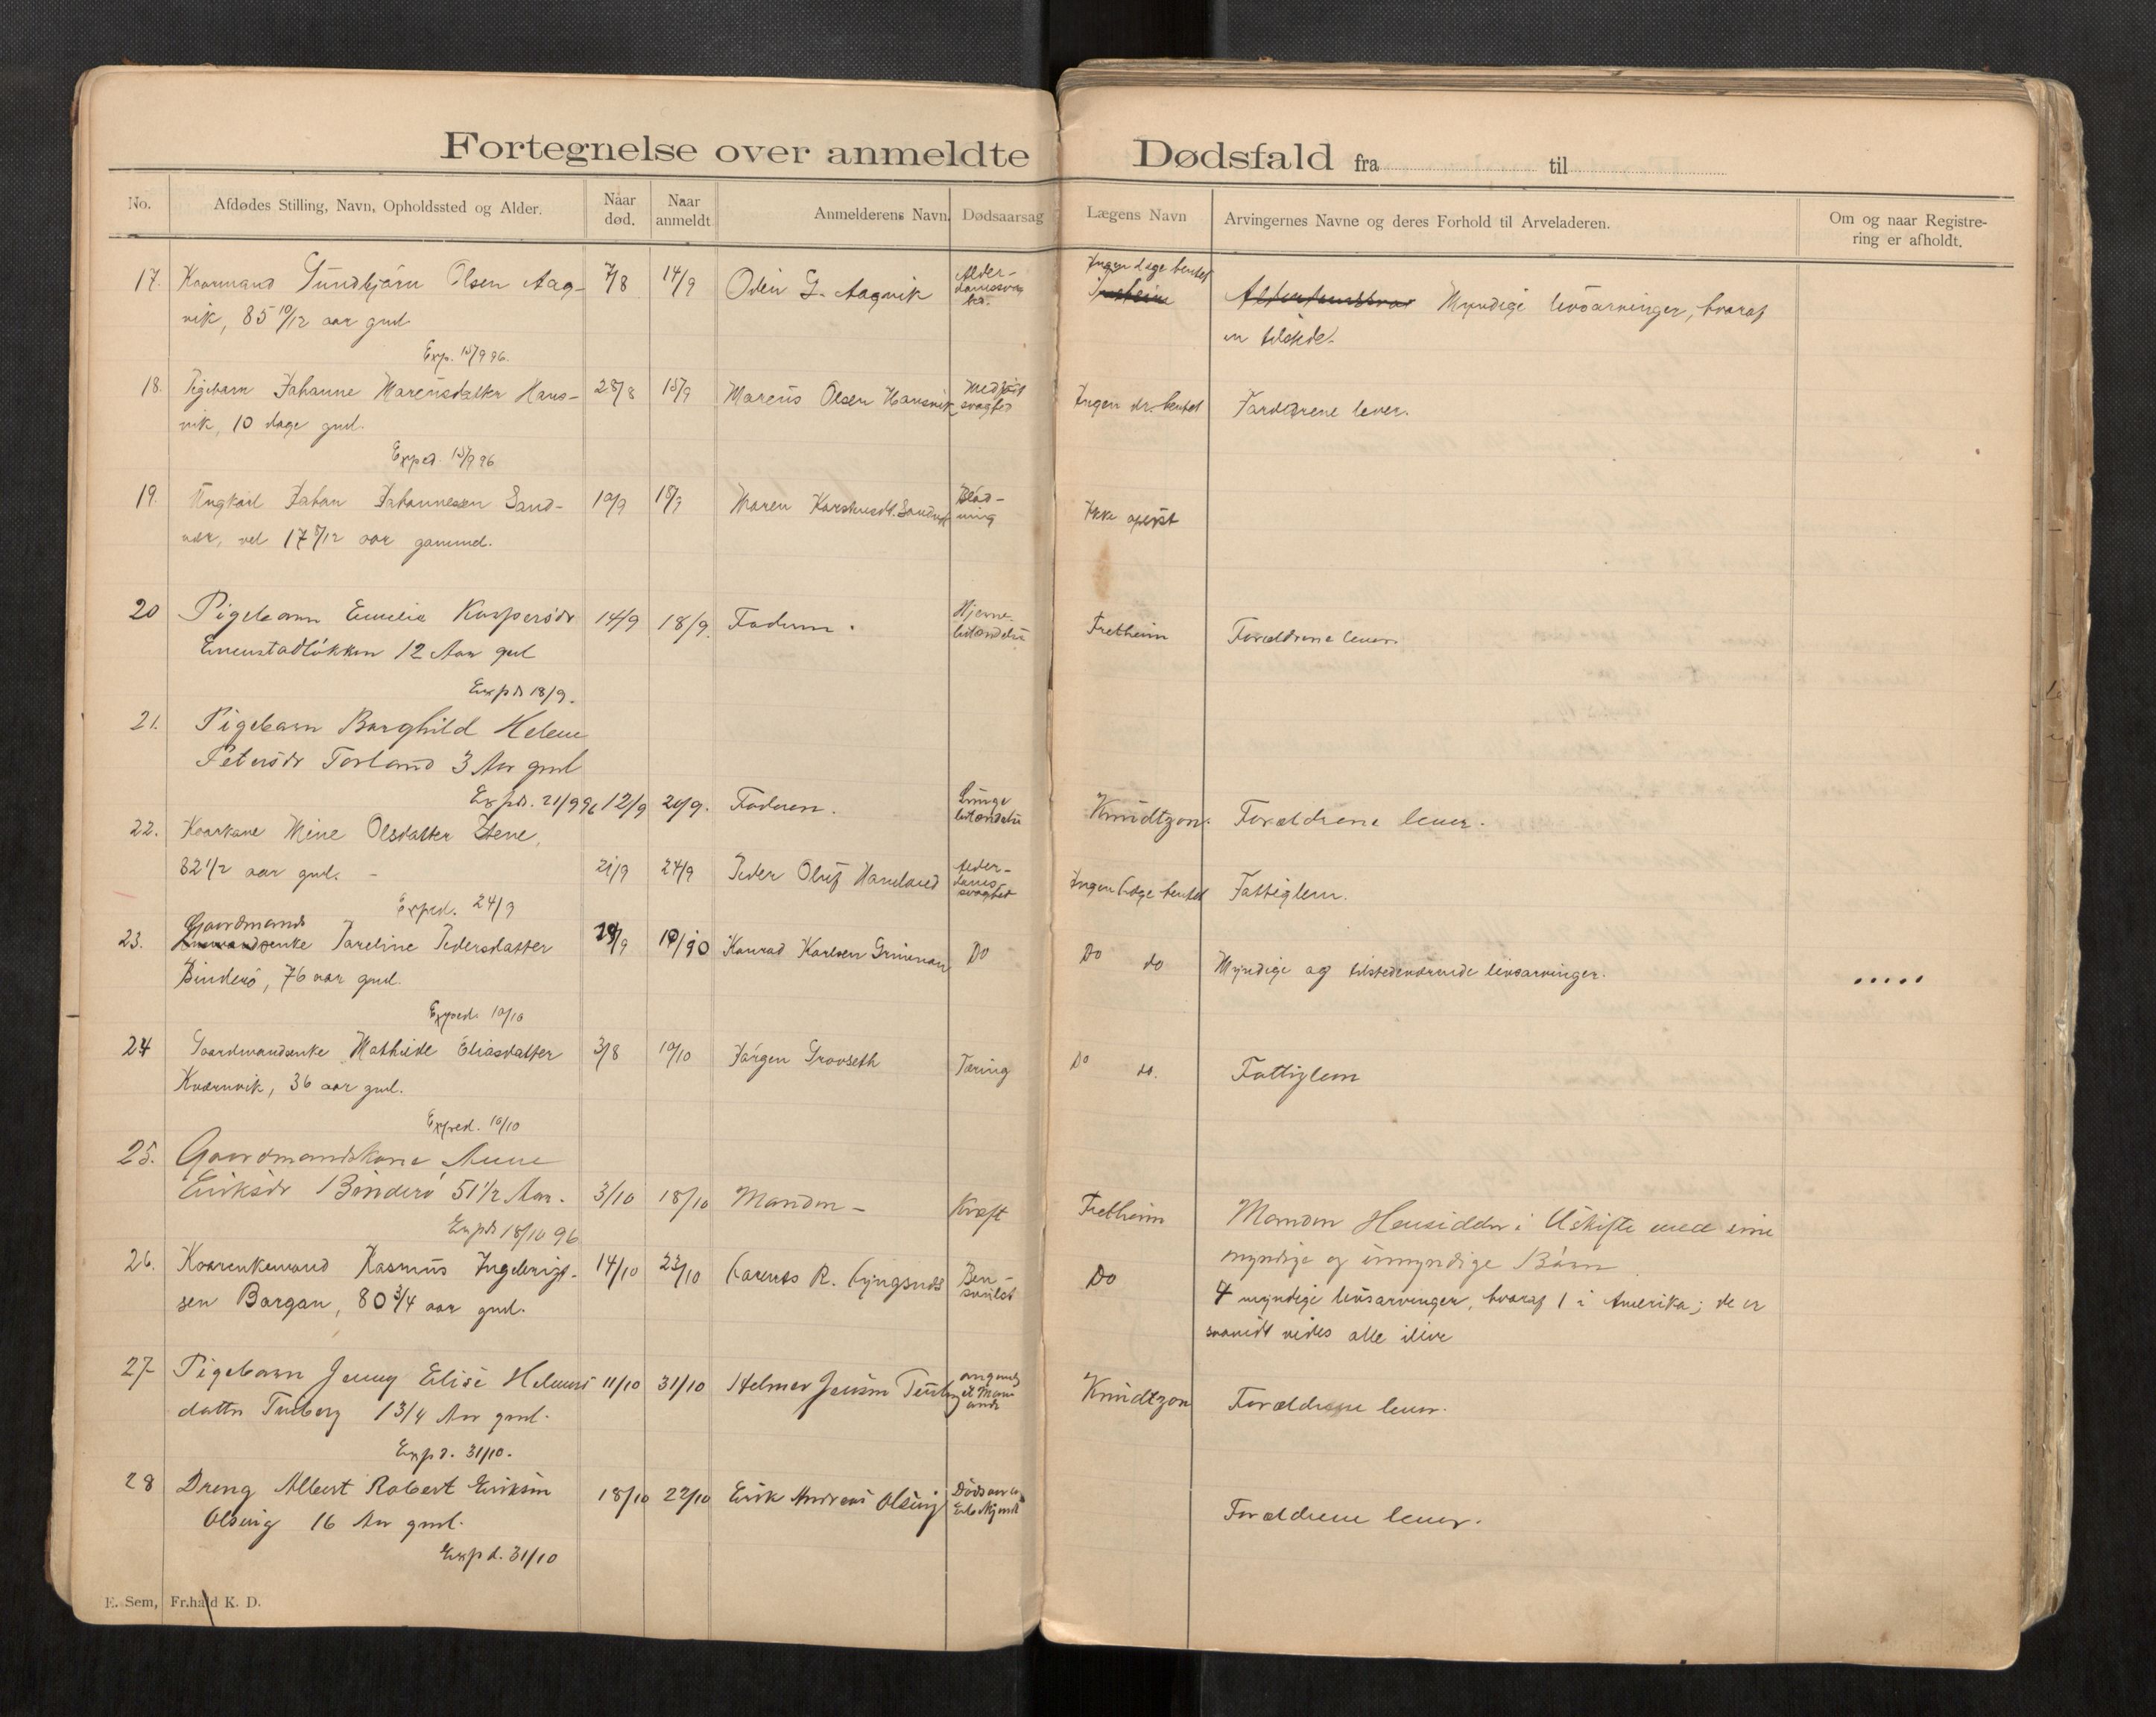 Fortegnelse over anmeldte Dødsfald fra til
No. Afdødes Stilling, Navn, Opholdssted og Alder. Naar død. Naar anmeldt Anmelderens Navn. Dødsaarsag Lægens Navn Arvingernes Navne og deres Forhold til Arveladeren. Om og naar Registrering er afholdt.
17. Kaarmand Gundbjørn Olsen Aag- 7/8 14/9 Odin G. Aagvik Alder- Ingen læge hentet
Myndige livsarvinger, hvoraf
vik, 85 10/12 aar gml.
en tilstede.
Exp. 15/9 96.
18. Pigebarn Johanne Mareusdatter Hans- 28/8 15/9 Mareus Olsen Hansvik Medfødt svaghed Ingen dr. hentet Forældrene lever.
vik, 10 dage gml.
Exped. 15/9 96
19. Ungkarl Johan Johannesen Sand- 10/9 18/9 Maren Blød-
ning Ikke oplyst
vær, vel 17 aar gammel.
20 Pigebarn Emelie Kaspersdr 14/9 18/9. Faderen. Hjerne-
betændelse Fretheim Forældrene lever.
Emenstadløkken 12 Aar gml
Expd 18/9.
21. Pigebarn Borghild Helene
Petersdr Torland 3 Aar gml
Expd. 21/9 96 12/9 21/9. Faderen. Lunge
betændelse Knudtzon. Forældrene lever.
22. Kaarkane Mine Olsdatter Stene,
82 1/2 aar gml. 21/9 24/9 Peder Oluf Alder-
doms-
svaghed Ingen læge hentet Fattiglem.
Exped. 24/9
Gaardmands
23. enke Pareline Pedersdatter 29/9 10/10 Konrad Karlsen Do Do do Myndige og tilstedeværende livsarvinger.
Binderø, 76 aar gml.
Exped. 10/10
24 Gaardmandsenke Mathilde Eliasdatter 3/8 10/10 Jørgen Grovseth Tæring Do do. Fattiglem
Kværnvik, 36 aar gml.
Exped. 10/10
25. Gaardmandskone Anne
Eriksdr Binderø 51 1/2 Aar. 3/10 18/10 Manden - Kræft Fretheim Manden Hensidder i Uskifte med sine
Expd 18/10 96
myndige og umyndige Børn
26. Kaarenkemand Rasmus Ingebrigt- 14/10 23/10 Larents R. Lyngsnes Ben-
svulst Do 4 myndige livsarvinger, hvoraf 1 i Amerika; de er
sen Borgan, 80 3/4 aar gml.
saavidt vides alle ilive
27 Pigebarn Jenny Elise Helmers 11/10 31/10 Helmer Jensen Knudtzon Forældrene lever.
datter 1 3/4 Aar gml.
Expd. 31/10.
28 Dreng Albert Robert Eriksen 18/10 22/10 Erik Andreas Olsing Forældrene lever.
Olsing 16 Aar gml.
Expd. 31/10
E. Sem, Fr.hald K. D.